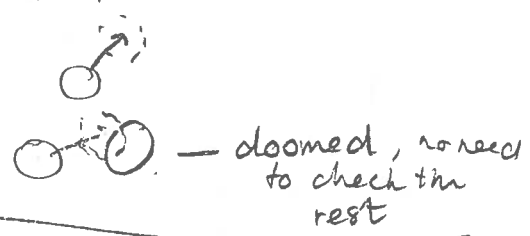 — doomed, no need
to check the
rest